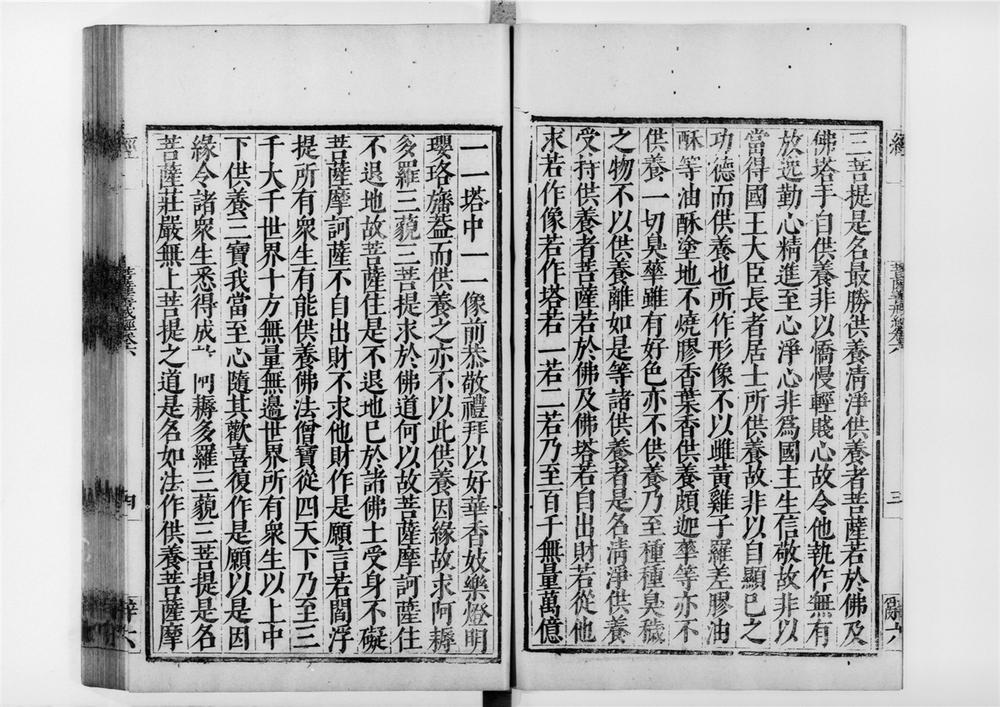 三菩提是名最勝供養清淨供養者菩薩若於佛及
佛塔手自供養非以憍慢輕賤心故令他執作無有
放逸勤心精進至心淨心非爲國主生信敬故非以
當得國王大臣長者居士所供養故非以自顯已之
功德而供養也所作形像不以雌黃雞子羅差膠油
酥等油酥塗地不燒膠香葉香供養頗迦華等亦不
供養一切臭華雖有好色亦不供養乃至種種臭穢
之物不以供養離如是等諸供養者是名清淨供養
受持供養者菩薩若於佛及佛塔若自出財若從他
求若作像若作塔若一若二若乃至百千無量萬億
三
一一塔中一一像前恭敬禮拜以好華香妓樂燈明
瓔珞旛蓋而供養之亦不以此供養因緣故求阿耨
多羅三藐三菩提求於佛道何以故菩薩摩訶薩住
不退地故菩薩住是不退地已於諸佛土受身不礙
菩薩摩訶薩不自出財不求他財作是願言若閻浮
提所有衆生有能供養佛法僧寶從四天下乃至三
千大千世界十方無量無邊世界所有衆生以上中
下供養三寶我當至心隨其歡喜復作是願以是因
緣令諸衆生悉得成 阿耨多羅三藐三菩提是名
菩薩莊嚴無上菩提之道是名如法作供養菩薩摩
經
四